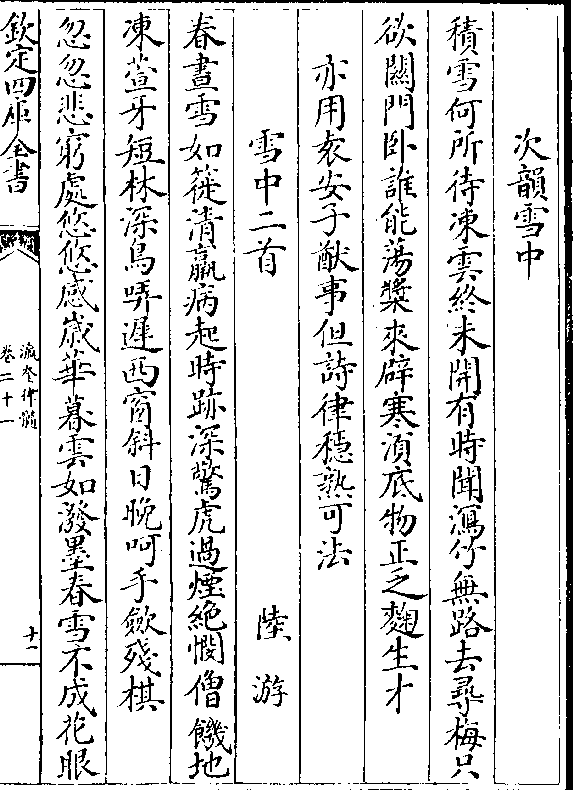 次韻雪中
積雪何所待凍雲終未開有時聞瀉竹無路去尋梅只
欲關門卧誰能蕩槳來辟寒湏底物正乏麴生才
亦用袁安子猷事但詩律穩熟可法
雪中二首 陸游
春晝雪如簁清羸病起時跡深驚虎過煙絶憫僧饑地
凍萱牙短林深鳥哢遲西窗斜日晚呵手斂殘棋
忽忽悲窮處悠悠感嵗華暮雲如潑墨春雪不成花眼
欽定四庫全書
瀛奎律髓
卷二十一
十一